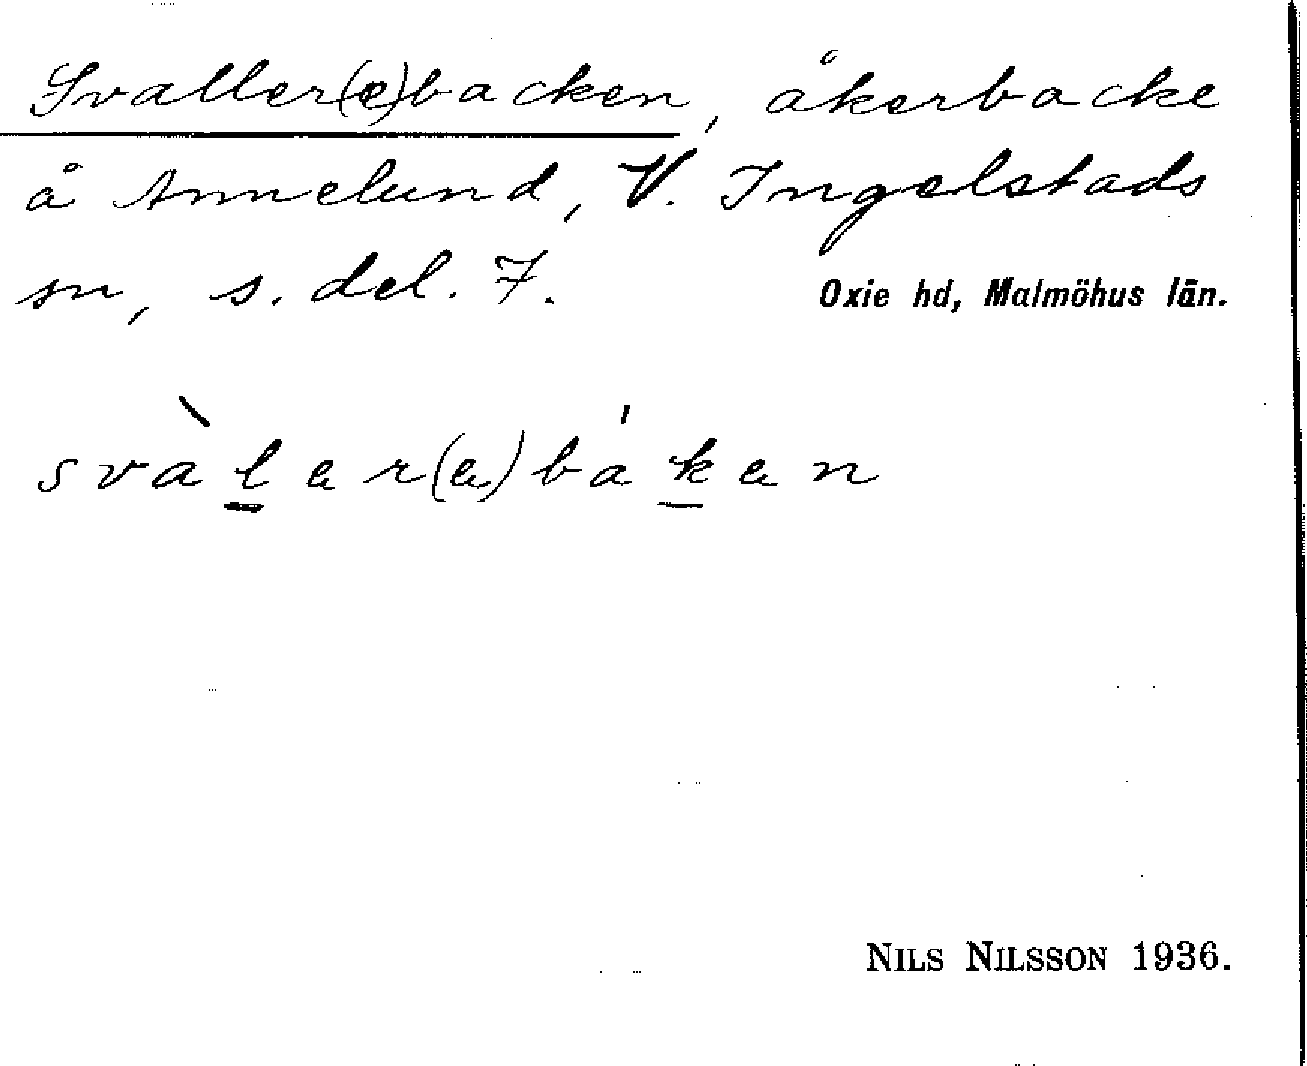 Svaller(e)backen, åkerbacke
å Annelund, V. Ingelstads
sn, s. del. 7.
Oxie hd, Malmöhus län.
svàl̲ər(ə)bák̲ən
NILS NILSSON 1936.